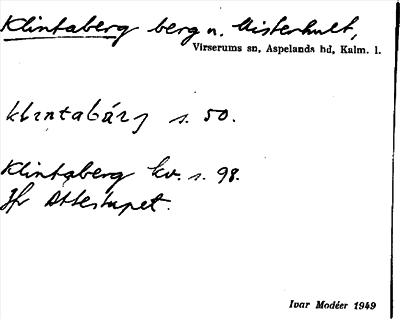 Klintaberg berg n. Misterhult,
Virserums sn, Aspelands hd, Kalm. l.
klıntabárj s. 50.
Klintaberg kv. s. 98.
Jfr Ättestupet.
Ivar Modéer 1949